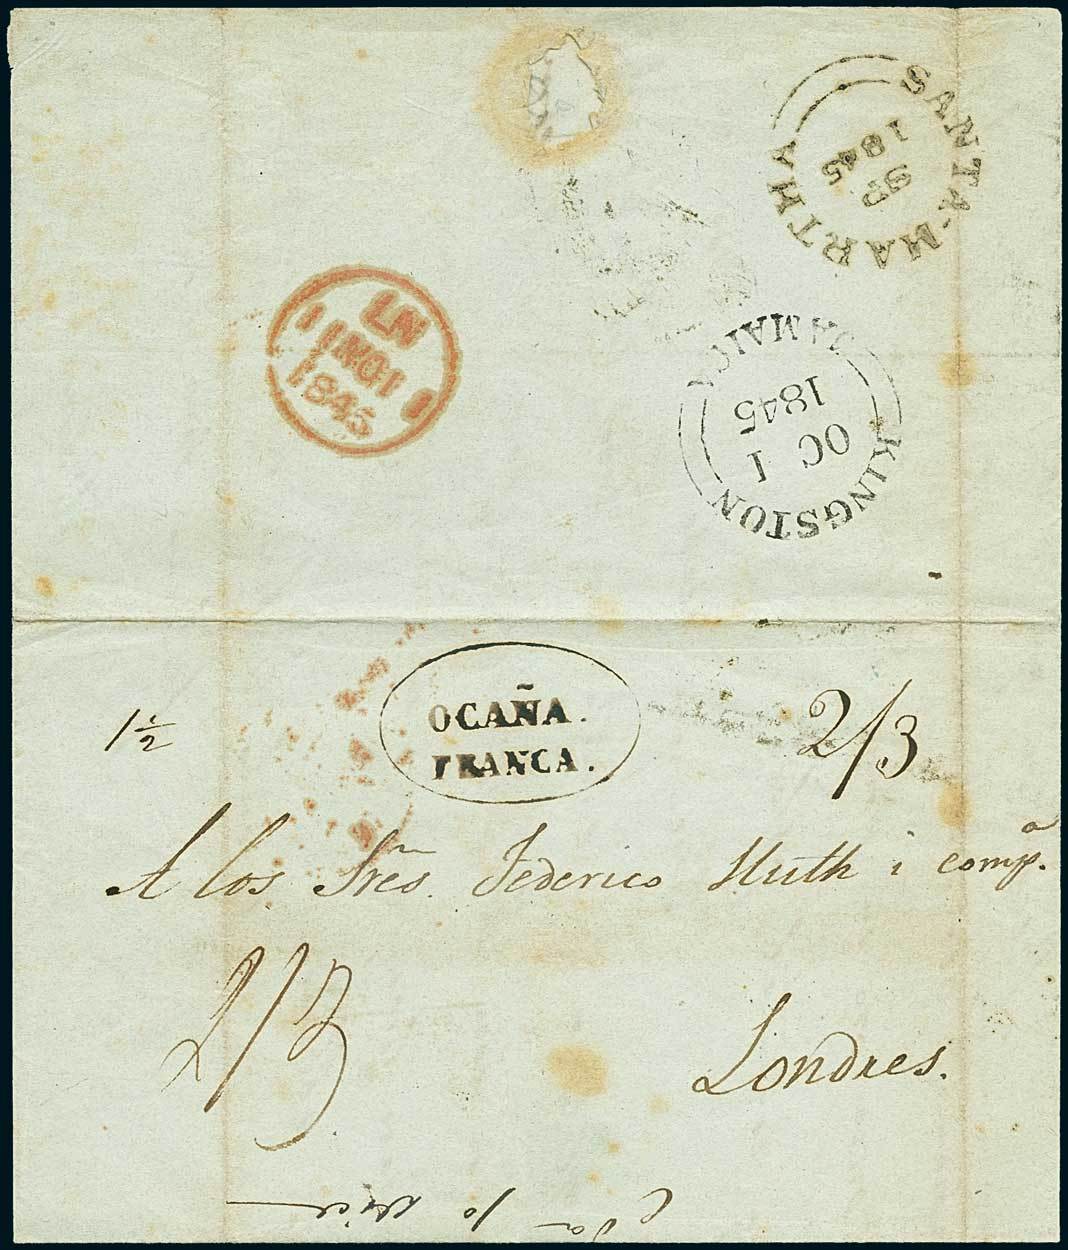 SANTA-MARTHA
SP
1845
LN
1NO1
1845
KINGSTON
JAMAICA
OC 1
1845
OCAÑA.
FRANCA.
1 1/2
2/3
A los Sres. Federico Huth i compa.
2/3
Londres.